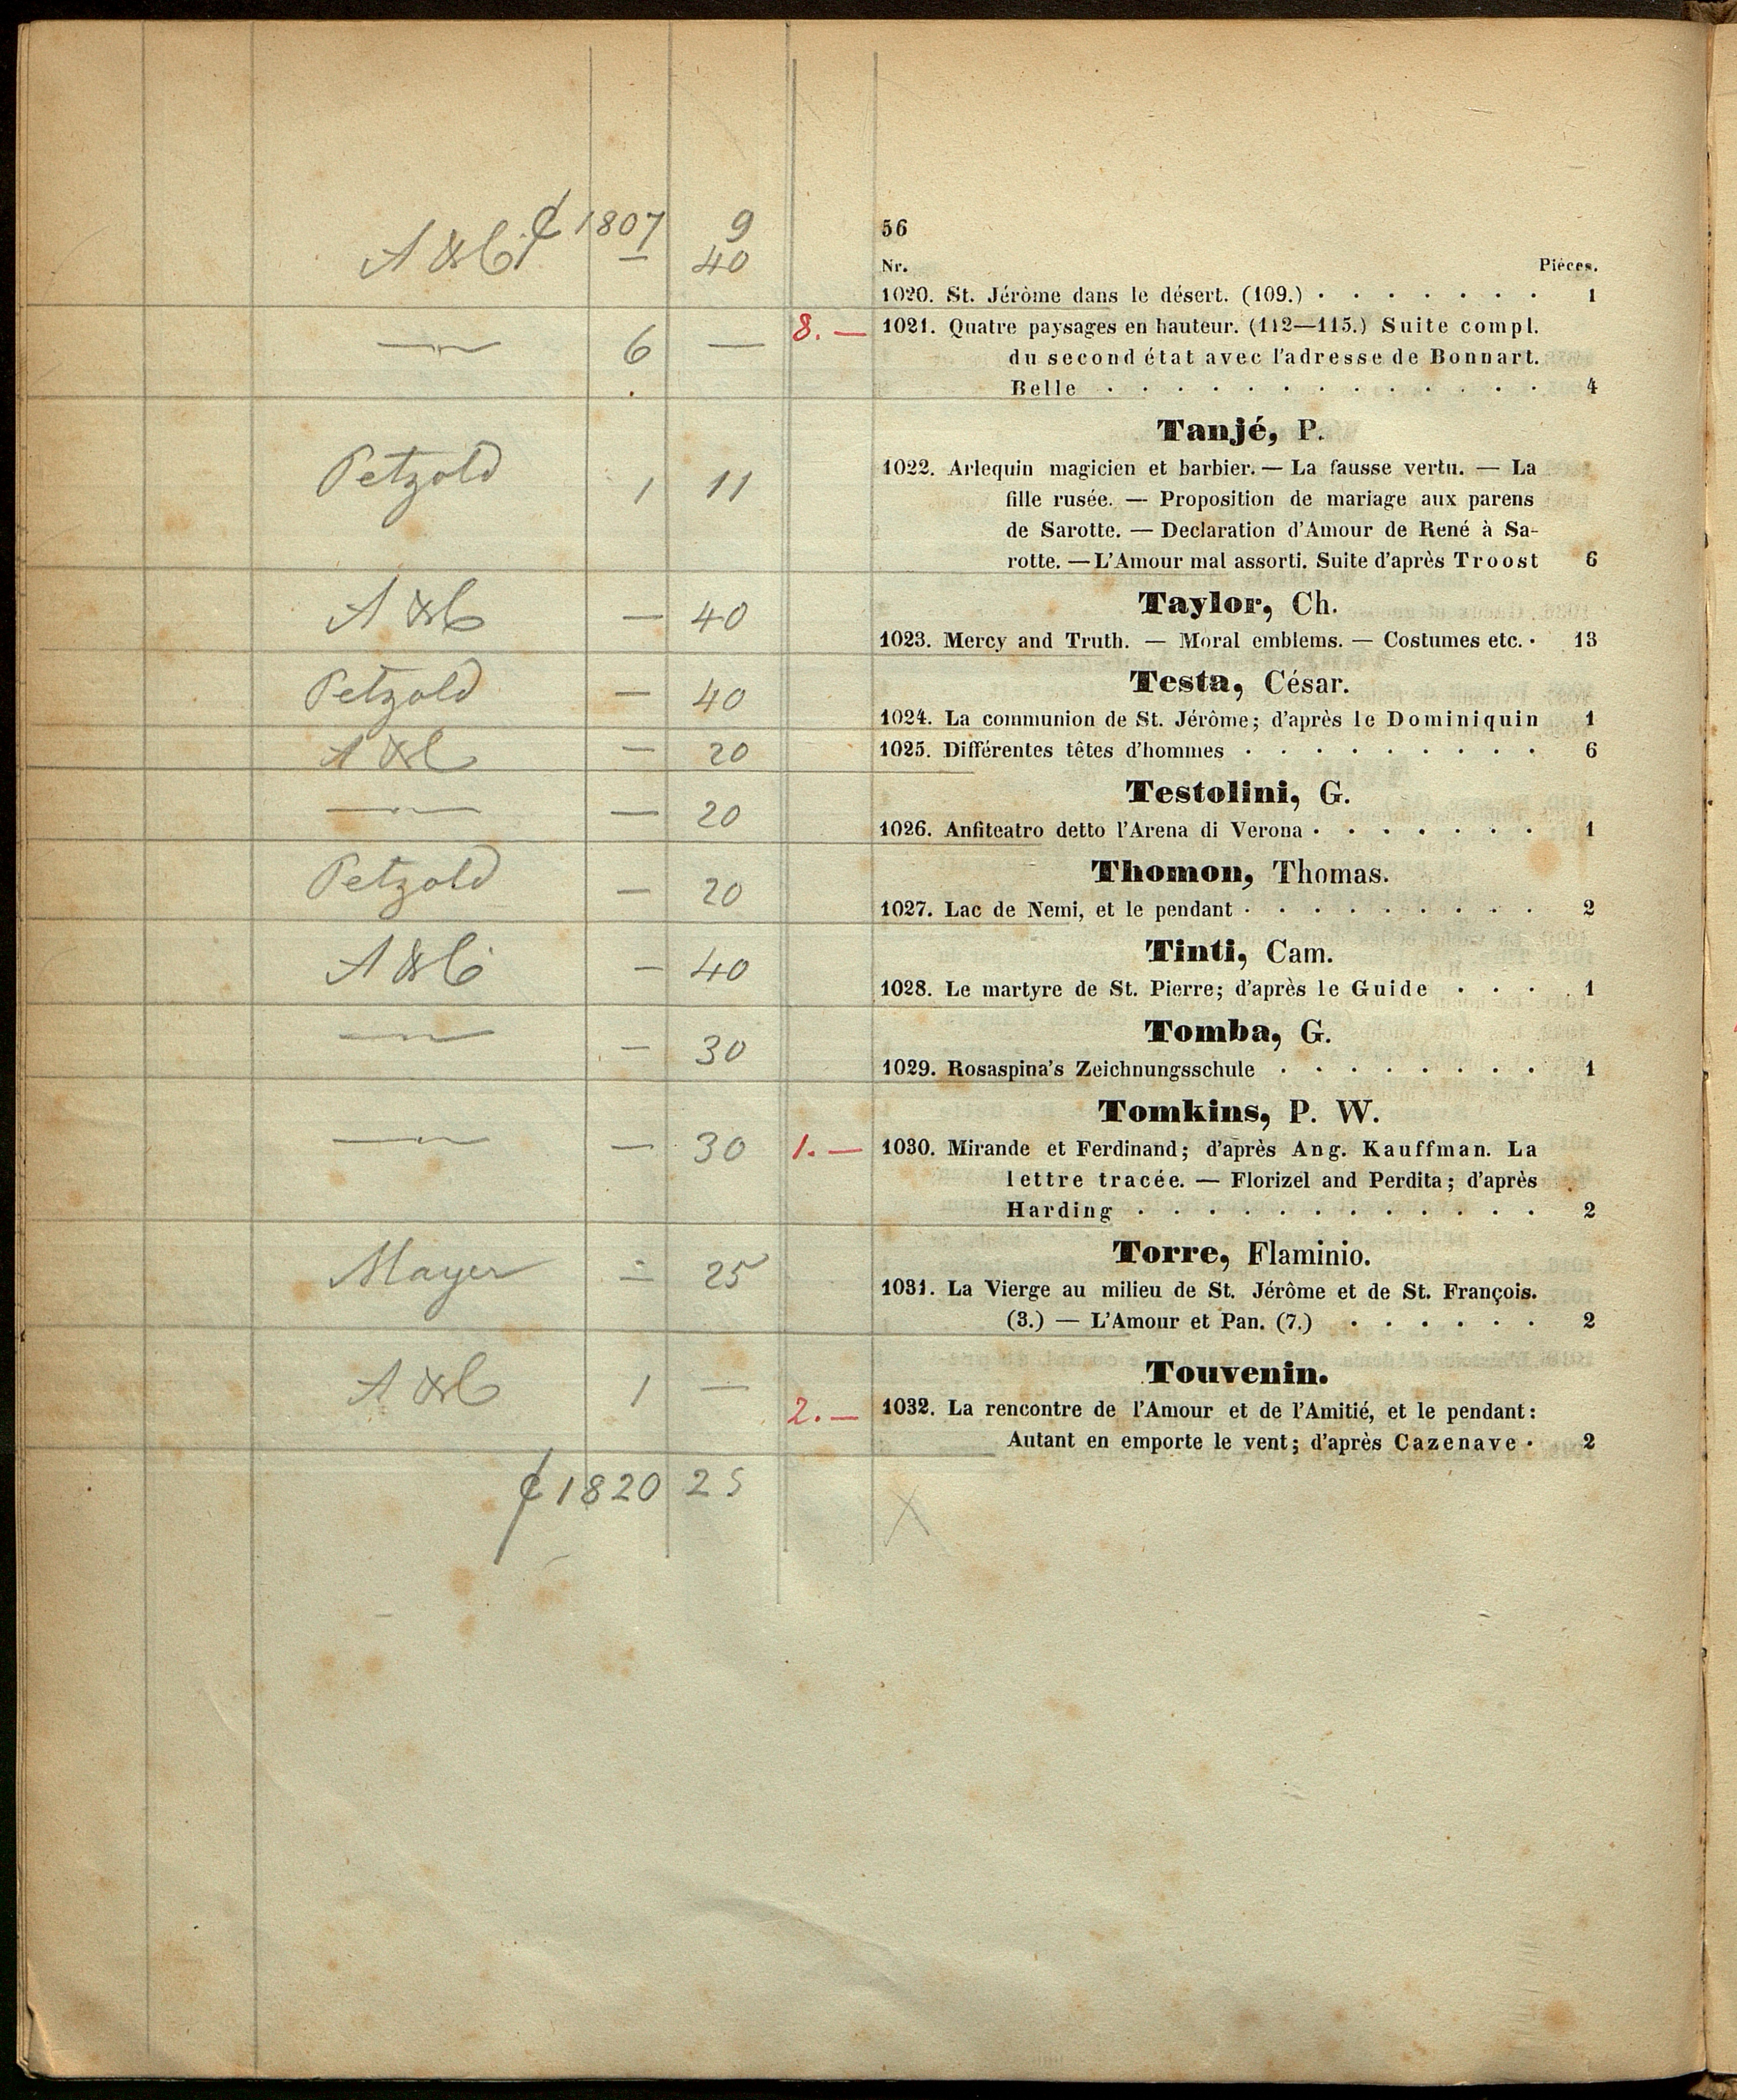 ₡ 1807 9
56
A & C — 40
Nr. Pièces.
1020. St. Jérôme dans le désert. (109.) · · · · · · · 1
— 6 — 8. —
1021. Quatre paysages en hauteur. (112—115.) Suite compl.
du second état avec l'adresse de Bonnart.
Belle · · · · · · · · · · · · · 4
Tanjé, P.
Petzold 1 11
1022. Arlequin magicien et barbier. — La fausse vertu. — La
fille rusée. — Proposition de mariage aux parens
de Sarotte. — Declaration d'Amour de René à Sa-
rotte. — L'Amour mal assorti. Suite d'après Troost 6
Taylor, Ch.
A & C — 40
1023. Mercy and Truth. — Moral emblems. — Costumes etc. · 13
Testa, César.
Petzold — 40
1024. La communion de St. Jérôme; d'après le Dominiquin 1
A & C — 20
1025. Différentes têtes d'hommes · · · · · · · · · 6
Testolini, G.
— — 20
1026. Anfiteatro detto l'Arena di Verona · · · · · · · 1
Thomon, Thomas.
Petzold — 20
1027. Lac de Nemi, et le pendant · · · · · · · · · 2
Tinti, Cam.
A & C — 40
1028. Le martyre de St. Pierre; d'après le Guide · · · 1
Tomba, G.
— — 30
1029. Rosaspina's Zeichnungsschule · · · · · · · · 1
Tomkins, P. W.
— — 30 1. —
1030. Mirande et Ferdinand; d'après Ang. Kauffman. La
lettre tracée. — Florizel and Perdita; d'après
Harding · · · · · · · · · · · · 2
Torre, Flaminio.
Mayer — 25
1031. La Vierge au milieu de St. Jérôme et de St. François.
(3.) — L'Amour et Pan. (7.) · · · · · · 2
Touvenin.
A & C 1 — 2. —
1032. La rencontre de l'Amour et de l'Amitié, et le pendant:
Autant en emporte le vent; d'après Cazenave · 2
₡ 1820 25
X